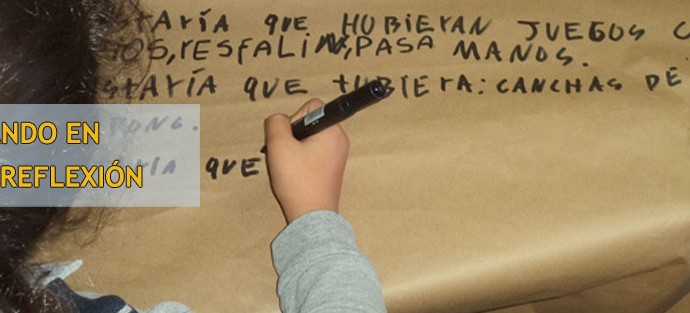 STARÍA QUE HUBIERAN JUEGOS C
OS, RESFALIN, PASA MANOS.
STARÍA QUE TUBIERA: CANCHAS DE
PONG.
RÍA QUE
ANDO EN
REFLEXIÓN